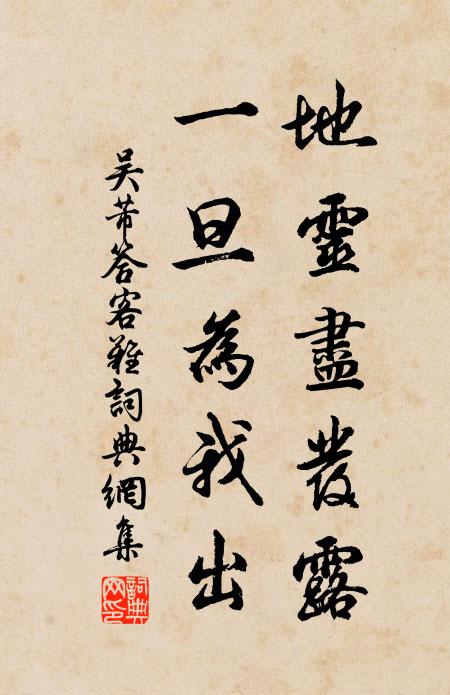 地靈盡發露
一旦為我出
吳芾答客難詞典網集
詞典網印